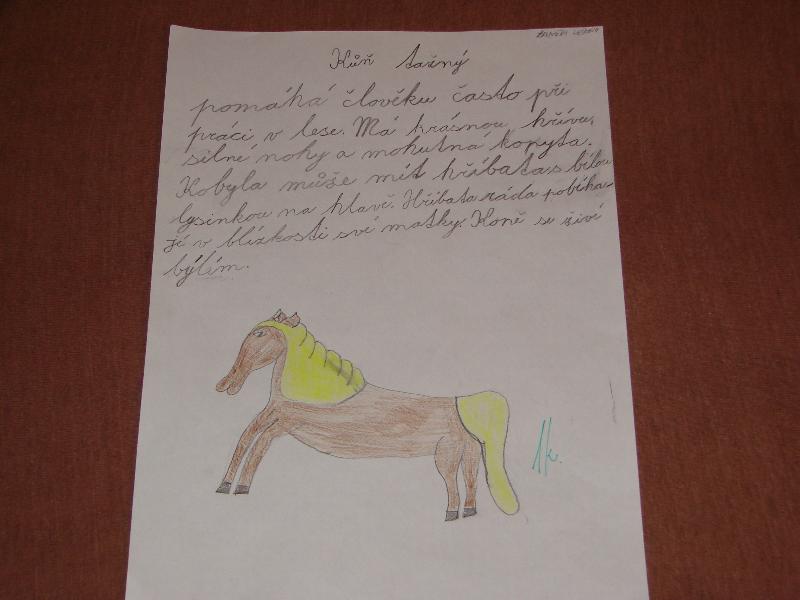 Kůň tažný
pomáhá člověku často při
práci v lese. Má krásnou hřívu,
silné nohy a mohutná kopyta.
Kobyla může mít hříbata s bílou
lysinkou na hlavě. Hříbata ráda pobíha-
jí v blízkosti své matky. Koně se živí
býlím.
1k.